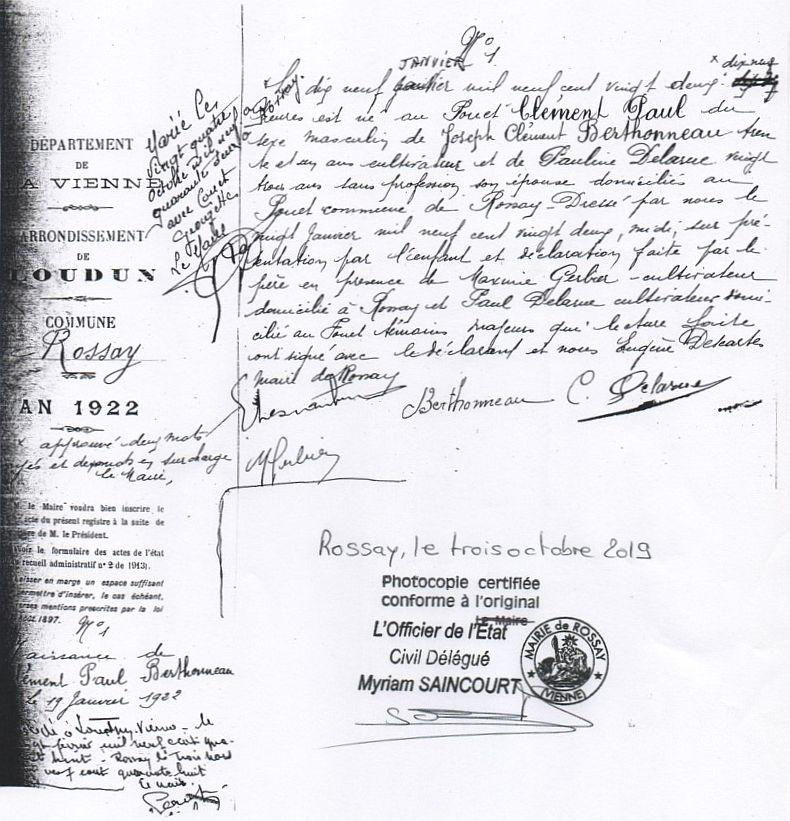 N° 1
JANVIER
Le dix neuf janvier mil neuf cent vingt deux x dix neuf
heures est né au Fouet Clément Paul du
sexe masculin de Joseph Clément Berthonneau tren
te et un ans cultivateur et de Pauline Delarue vingt
trois ans sans profession, son épouse domiciliés au
Fouet commune de Rossay - Dressé par nous le
vingt janvier mil neuf cent vingt deux, midi, sur pré-
sentation par l'enfant et déclaration faite par le
père en présence de Maxime Gerbier cultivateur
domicilié à Rossay et Paul Delarue cultivateur domi-
cilié au Fouet témoins majeurs qui lecture faite
ont signé avec le déclarant et nous Eugène Descartes
maire de Rossay
Berthonneau C. Delarue
DÉPARTEMENT
DE
LA VIENNE
ARRONDISSEMENT
DE
LOUDUN
COMMUNE
Rossay
AN 1922
Marié les
vingt quatre
octobre mil neuf
quarante
avec
Georgette
Le Maire
x approuvé deux mots
et deux mots en surcharge
le Maire,
M. le Maire voudra bien inscrire le
acte du présent registre à la suite de
de M. le Président.
Voir le formulaire des actes de l'état
recueil administratif n° 2 de 1913).
Laisser en marge un espace suffisant
permettre d'insérer, le cas échéant,
mentions prescrites par la loi
1897.
N° 1
Naissance de
Clément Paul Berthonneau
le 19 Janvier 1922
à Vienne - le
février mil neuf cent qua-
huit - Rossay le trois
neuf cent quarante huit
Le maire
Rossay, le trois octobre 2019
Photocopie certifiée
conforme à l'original
Le Maire
L'Officier de l'État
Civil Délégué
Myriam SAINCOURT
MAIRIE de ROSSAY
(VIENNE)